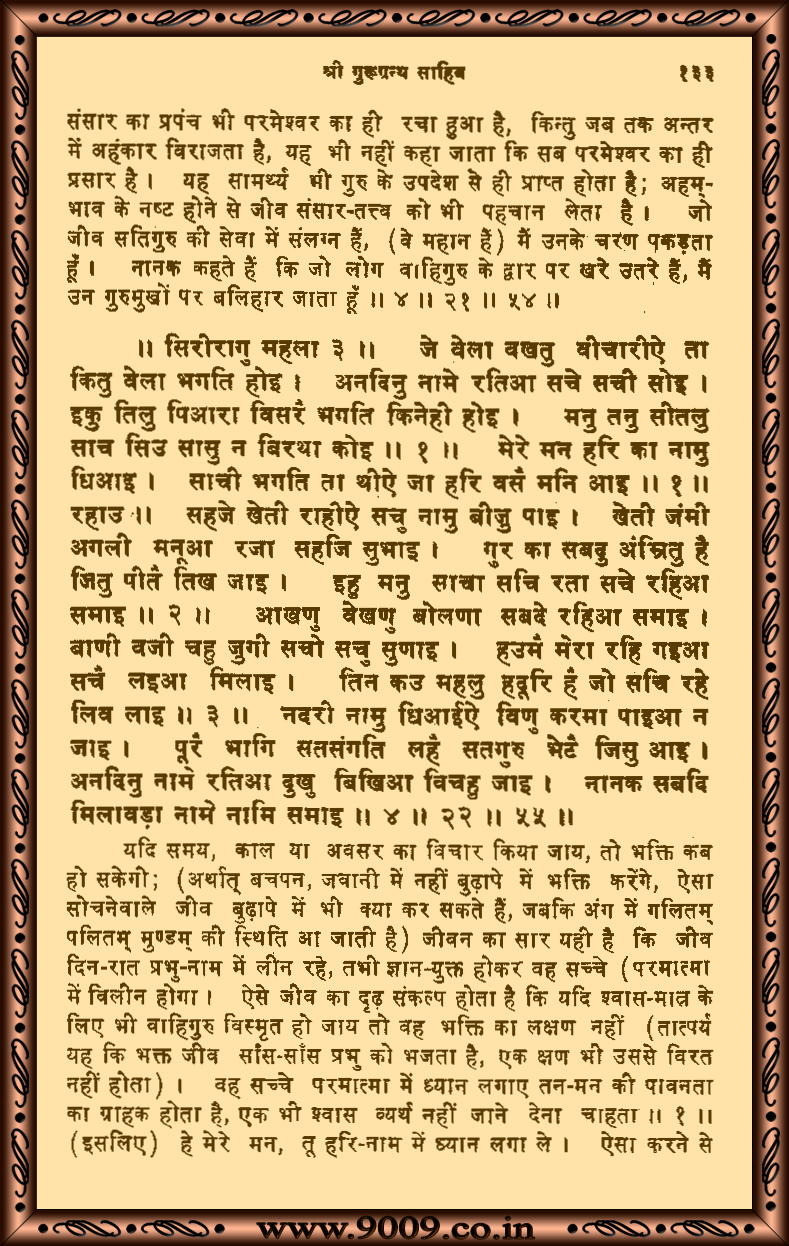 श्री गुरूग्रन्थ साहिब १३३
संसार का प्रपंच भी परमेश्वर का ही रचा हुआ है, किन्तु जब तक अन्तर
में अहंकार विराजता है, यह भी नहीं कहा जाता कि सब परमेश्वर का ही
प्रसार है। यह सामर्थ्य भी गुरु के उपदेश से ही प्राप्त होता है; अहम्-
भाव के नष्ट होने से जीव संसार-तत्त्व को भी पहचान लेता है। जो
जीव सतिगुरु की सेवा में संलग्न हैं, (वे महान हैं) मैं उनके चरण पकड़ता
हूँ। नानक कहते हैं कि जो लोग वाहिगुरु के द्वार पर खरे उतरे हैं, मैं
उन गुरुमुखों पर बलिहार जाता हूँ ॥ ४ ॥ २१ ॥ ५४ ॥
॥ सिरीरागु महला ३ ॥ जे वेला वखतु वीचारीऐ ता
कितु वेला भगति होइ। अनदिनु नामे रतिआ सचे सची सोइ।
इकु तिलु पिआरा विसरै भगति किनेही होइ। मनु तनु सीतलु
साच सिउ सासु न बिरथा कोइ ॥ १ ॥ मेरे मन हरि का नामु
धिआइ। साची भगति ता थीऐ जा हरि वसै मनि आइ ॥ १ ॥
रहाउ ॥ सहजे खेती राहीऐ सचु नामु बीजु पाइ। खेती जंमी
अगली मनूआ रजा सहजि सुभाइ। गुर का सबदु अंम्रितु है
जितु पीतै तिख जाइ। इहु मनु साचा सचि रता सचे रहिआ
समाइ ॥ २ ॥ आखणु वेखणु बोलणा सबदे रहिआ समाइ।
बाणी वजी चहु जुगी सचो सचु सुणाइ। हउमै मेरा रहि गइआ
सचै लइआ मिलाइ। तिन कउ महलु हदूरि है जो सचि रहे
लिव लाइ ॥ ३ ॥ नदरी नामु धिआईऐ विणु करमा पाइआ न
जाइ। पूरै भागि सतसंगति लहै सतगुरु भेटै जिसु आइ।
अनदिनु नामे रतिआ दुखु बिखिआ विचहु जाइ। नानक सबदि
मिलावड़ा नामे नामि समाइ ॥ ४ ॥ २२ ॥ ५५ ॥
यदि समय, काल या अवसर का विचार किया जाय, तो भक्ति कब
हो सकेगी; (अर्थात् बचपन, जवानी में नहीं बुढ़ापे में भक्ति करेंगे, ऐसा
सोचनेवाले जीव बुढ़ापे में भी क्या कर सकते हैं, जबकि अंग में गलितम्
पलितम् मुण्डम् की स्थिति आ जाती है) जीवन का सार यही है कि जीव
दिन-रात प्रभु-नाम में लीन रहे, तभी ज्ञान-युक्त होकर वह सच्चे (परमात्मा
में विलीन होगा। ऐसे जीव का दृढ़ संकल्प होता है कि यदि श्वास-मात्र के
लिए भी वाहिगुरु विस्मृत हो जाय तो वह भक्ति का लक्षण नहीं (तात्पर्य
यह कि भक्त जीव साँस-साँस प्रभु को भजता है, एक क्षण भी उससे विरत
नहीं होता)। वह सच्चे परमात्मा में ध्यान लगाए तन-मन की पावनता
का ग्राहक होता है, एक भी श्वास व्यर्थ नहीं जाने देना चाहता ॥ १ ॥
(इसलिए) हे मेरे मन, तू हरि-नाम में ध्यान लगा ले। ऐसा करने से
www.9009.co.in